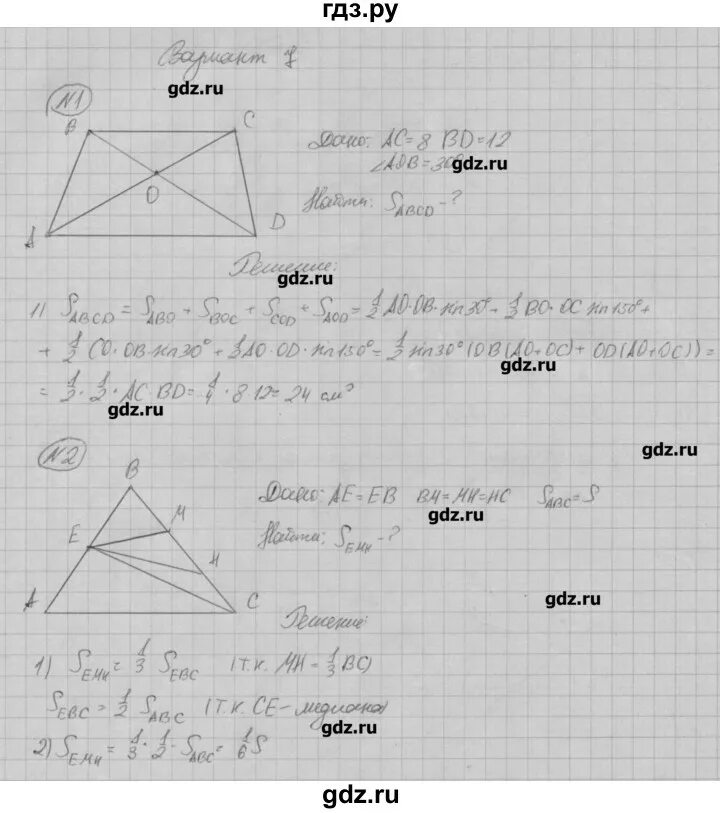 гдз.ру
Вариант 7
gdz.ru
N1
B
C
O
A
D
Дано: AC = 8 BD = 12
∠AOB = 30°
gdz.ru
Найти: S_ABCD - ?
Решение:
gdz.ru
1) S_ABCD = S_ABO + S_BOC + S_COD + S_AOD = 1/2 AO·OB·sin30° + 1/2 BO·OC sin150° +
+ 1/2 CO·OB·sin30° + 1/2 AO·OD·sin150° = 1/2 sin30° (OB(AO+OC) + OD(AO+OC)) =
gdz.ru
= 1/2 · 1/2 · AC·BD = 1/4 · 8·12 = 24 см²
gdz.ru
N2
gdz.ru
B
M
E
H
A
C
Дано: AE = EB BM = MH = HC S_ABC = S
gdz.ru
Найти: S_EMH - ?
gdz.ru
Решение:
1) S_EMH = 1/3 S_EBC (т.к. MH = 1/3 BC)
S_EBC = 1/2 S_ABC (т.к. CE - медиана)
gdz.ru
2) S_EMH = 1/3 · 1/2 · S_ABC = 1/6 S
gdz.ru